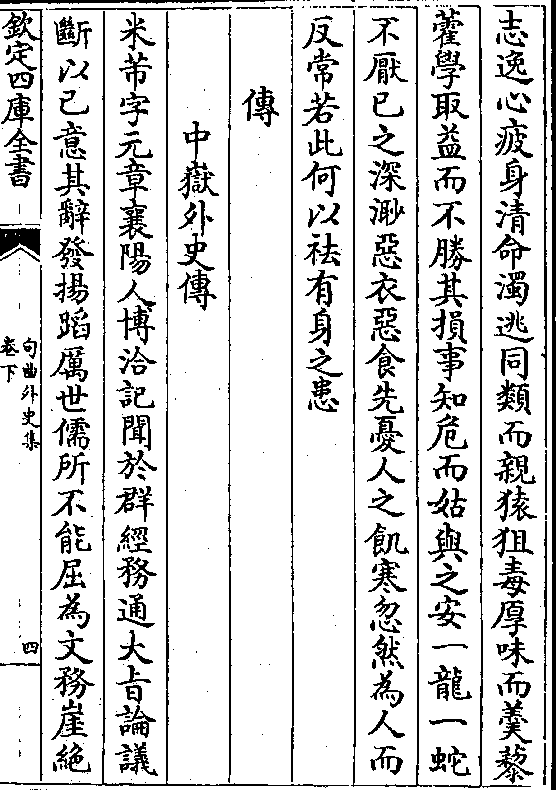 志逸心疲身清命濁逃同類而親猿狙毒厚味而羹藜
藿學取益而不勝其損事知危而姑與之安一龍一蛇
不厭已之深渺惡衣惡食先憂人之飢寒忽然為人而
反常若此何以祛有身之患
傳
中嶽外史傳
米芾字元章襄陽人博洽記聞於群經務通大旨論議
斷以已意其辭發揚蹈厲世儒所不能屈為文務崖絕
欽定四庫全書
句曲外史集
卷下
四